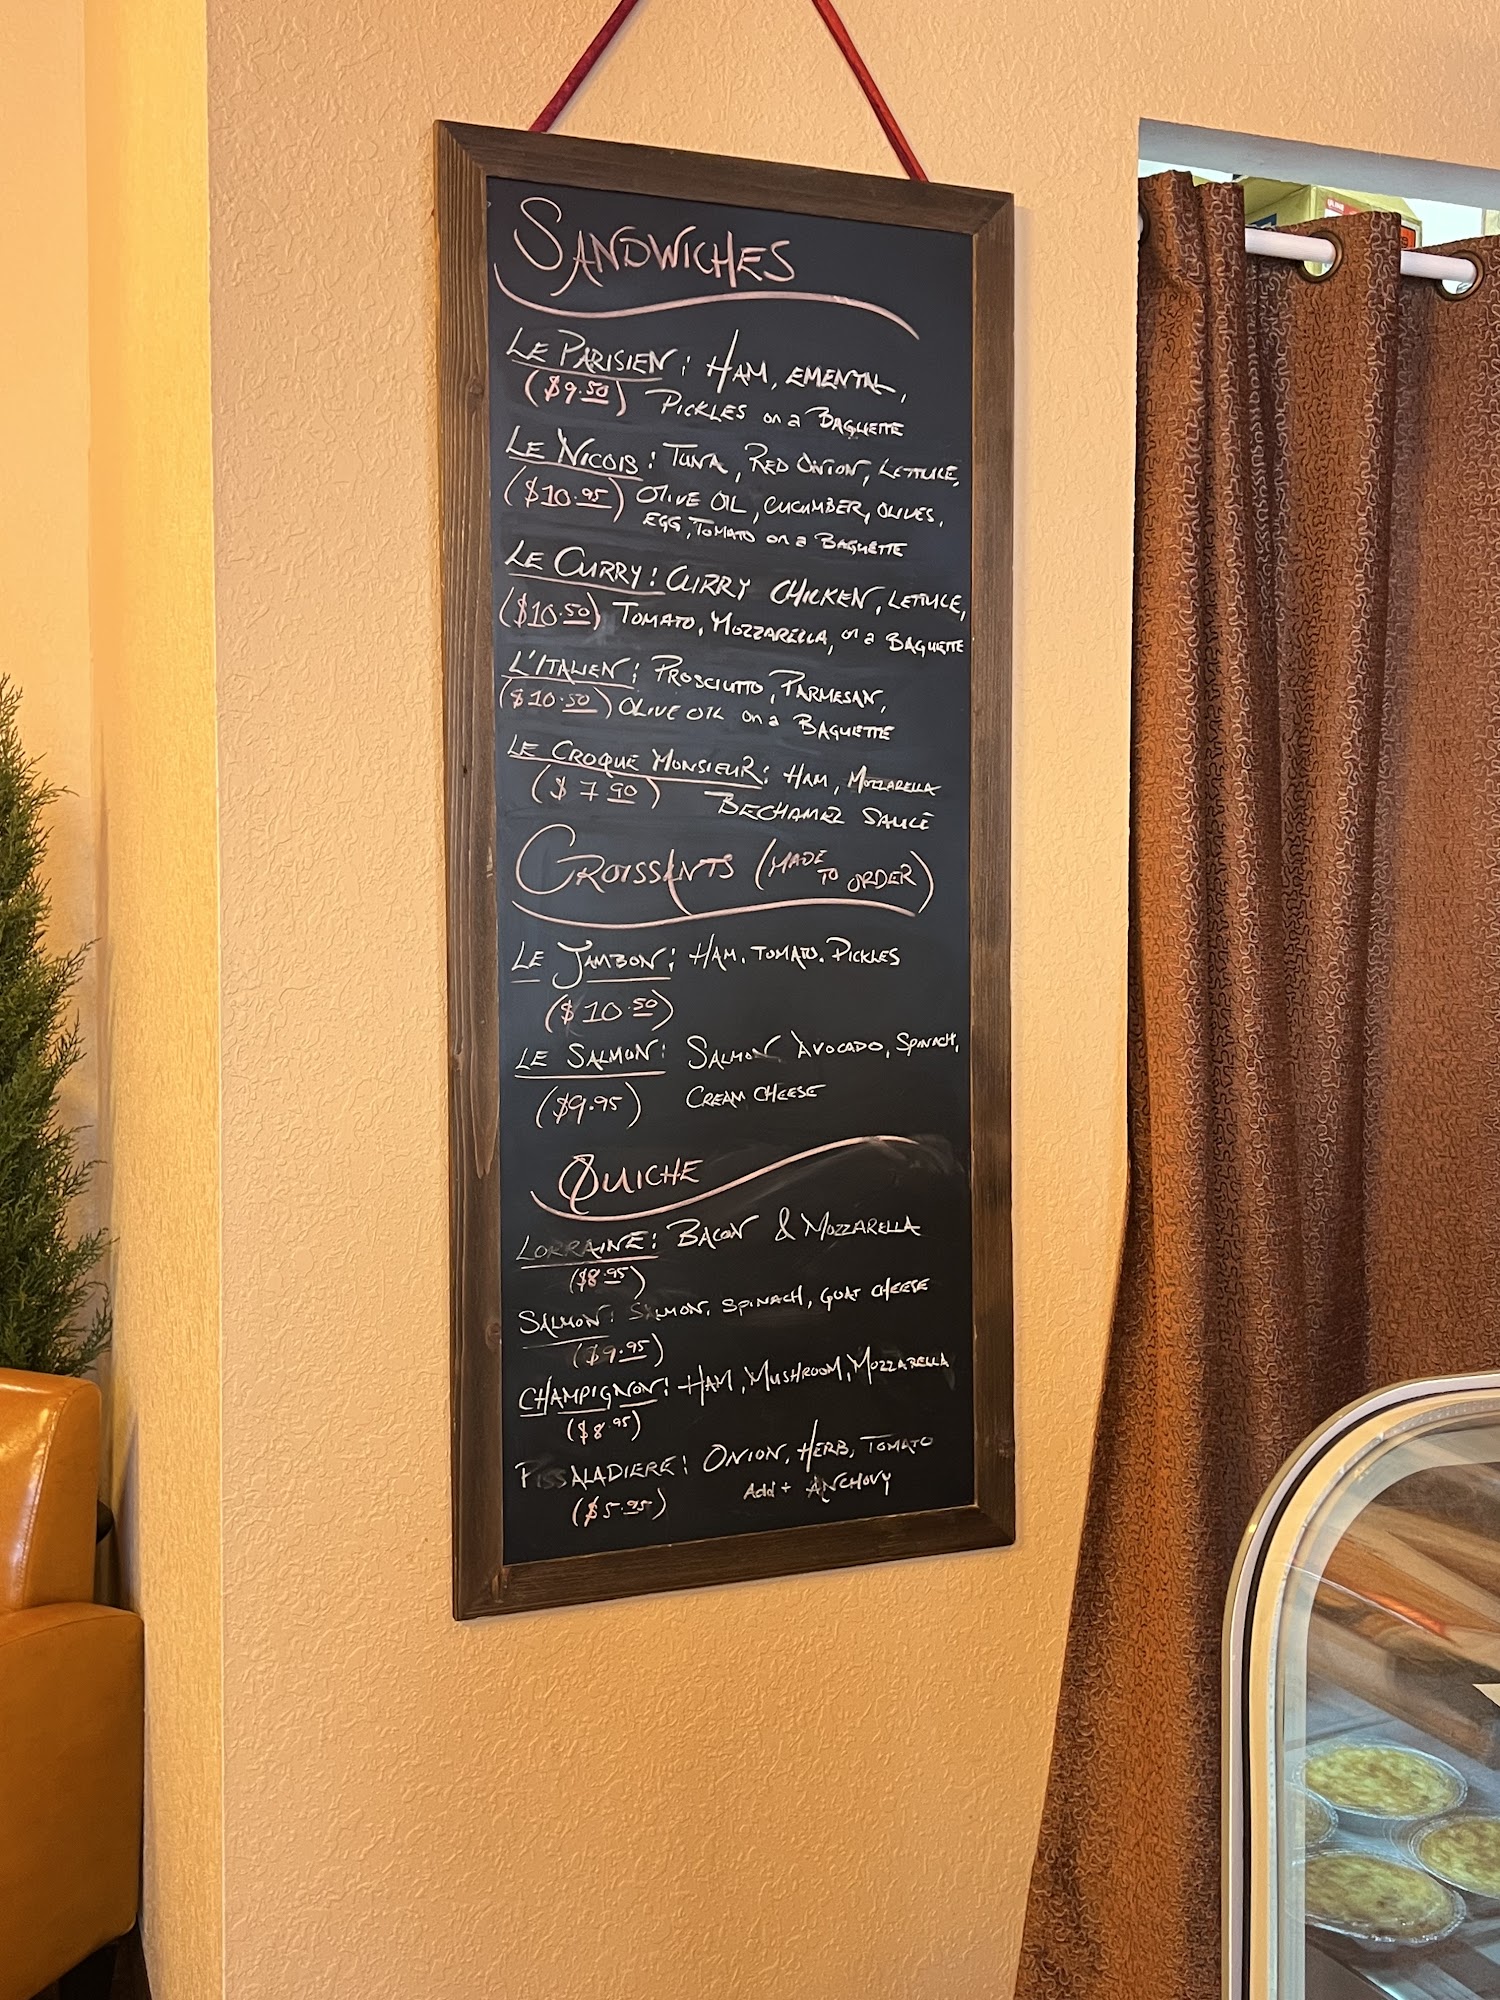 SANDWICHES
LE PARISIEN: HAM, EMENTAL,
($9.50) PICKLES on a BAGUETTE
LE NICOIS: TUNA, RED ONION, LETTUCE,
($10.95) OLIVE OIL, CUCUMBER, OLIVES,
EGG, TOMATO on a BAGUETTE
LE CURRY: CURRY CHICKEN, LETTUCE,
($10.50) TOMATO, MOZZARELLA, on a BAGUETTE
L'ITALIEN: PROSCIUTTO, PARMESAN,
($10.50) OLIVE OIL on a BAGUETTE
LE CROQUE MONSIEUR: HAM, MOZZARELLA
($7.90) BECHAMEL SAUCE
CROISSANTS (MADE TO ORDER)
LE JAMBON: HAM, TOMATO, PICKLES
($10.50)
LE SALMON: SALMON AVOCADO, SPINACH,
($9.95) CREAM CHEESE
QUICHE
LORRAINE: BACON & MOZZARELLA
($8.95)
SALMON: SALMON, SPINACH, GOAT CHEESE
($9.95)
CHAMPIGNON: HAM, MUSHROOM, MOZZARELLA
($8.95)
PISSALADIERE: ONION, HERB, TOMATO
($5.95) Add + ANCHOVY